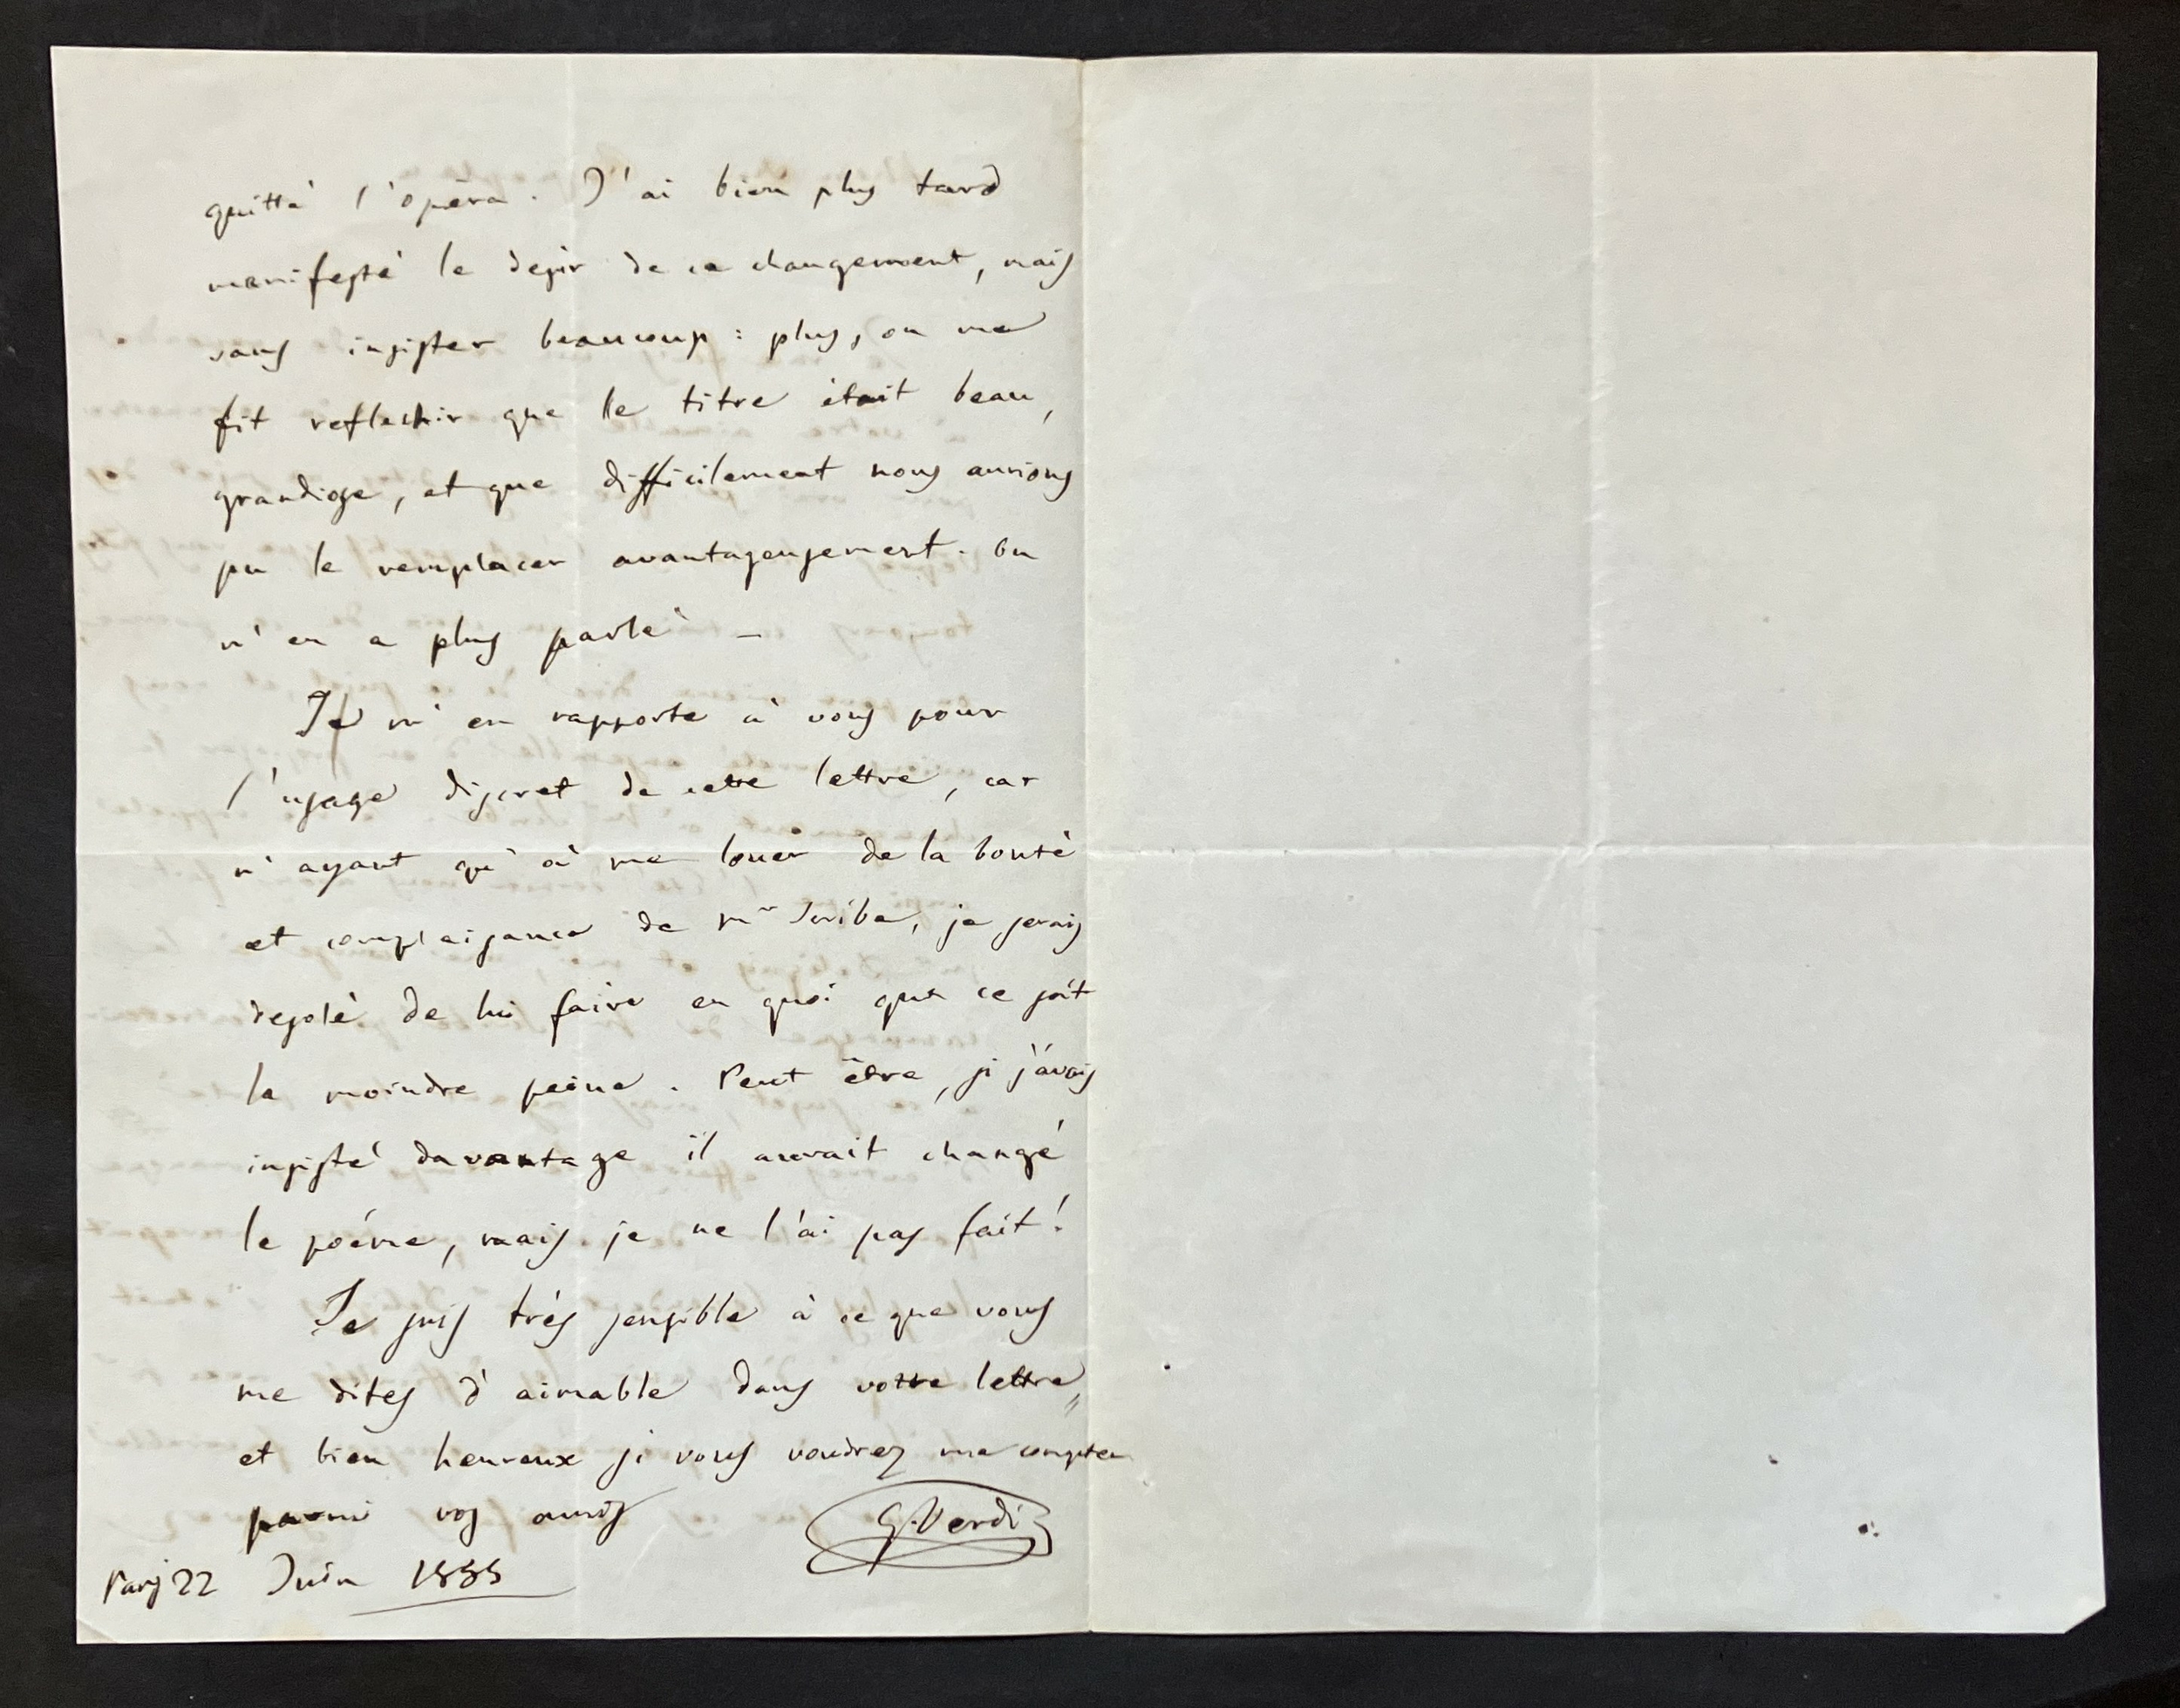 quitté l'opéra. J'ai bien plus tard
manifesté le desir de ce changement, mais
sans insister beaucoup: plus, on me
fit reflechir que le titre était beau,
grandiose, et que difficilement nous aurions
pu le remplacer avantageusement. On
n'en a plus parlé —
Je m'en rapporte à vous pour
l'usage discret de cette lettre, car
n'ayant qu'à me louer de la bonté
et complaisance de Mr Scribe, je serais
desolé de lui faire en quoi que ce soit
la moindre peine. Peut être, si j'avais
insisté davantage il aurait changé
le poéme, mais je ne l'ai pas fait!
Je suis trés sensible à ce que vous
me dites d'aimable dans votre lettre,
et bien heureux si vous voudrez me compter
parmi vos amis
G. Verdi
Paris 22 Juin 1855